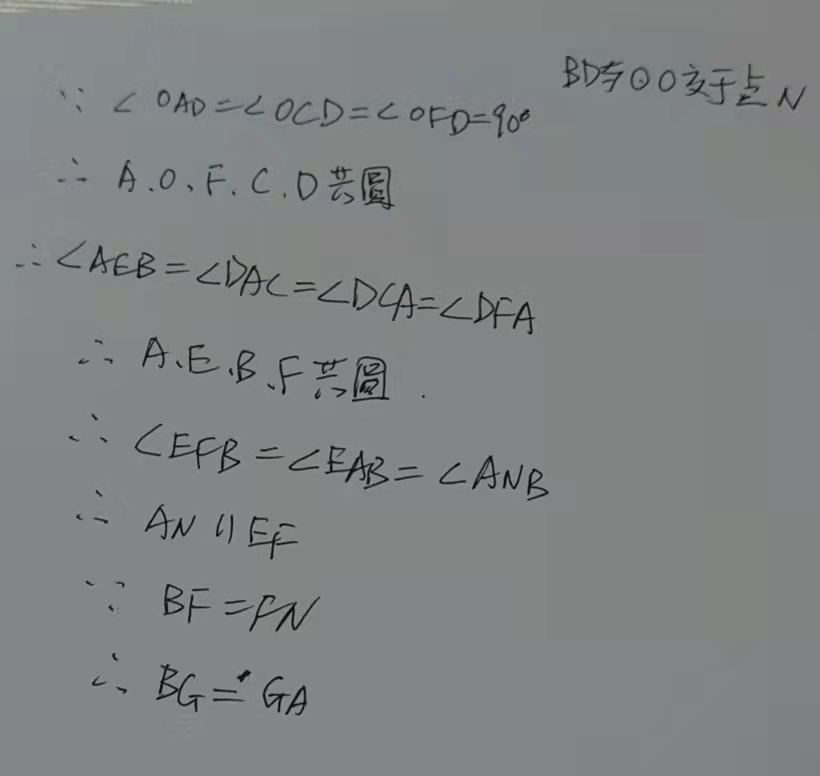 BD与⊙O交于点N
∵ ∠OAD=∠OCD=∠OFD=90°
∴ A.O、F.C.D共圓
∴ ∠AEB=∠DAC=∠DCA=∠DFA
∴ A.E.B.F共圓.
∴ ∠EFB=∠EAB=∠ANB
∴ AN∥EF
∵ BF=FN
∴ BG=GA